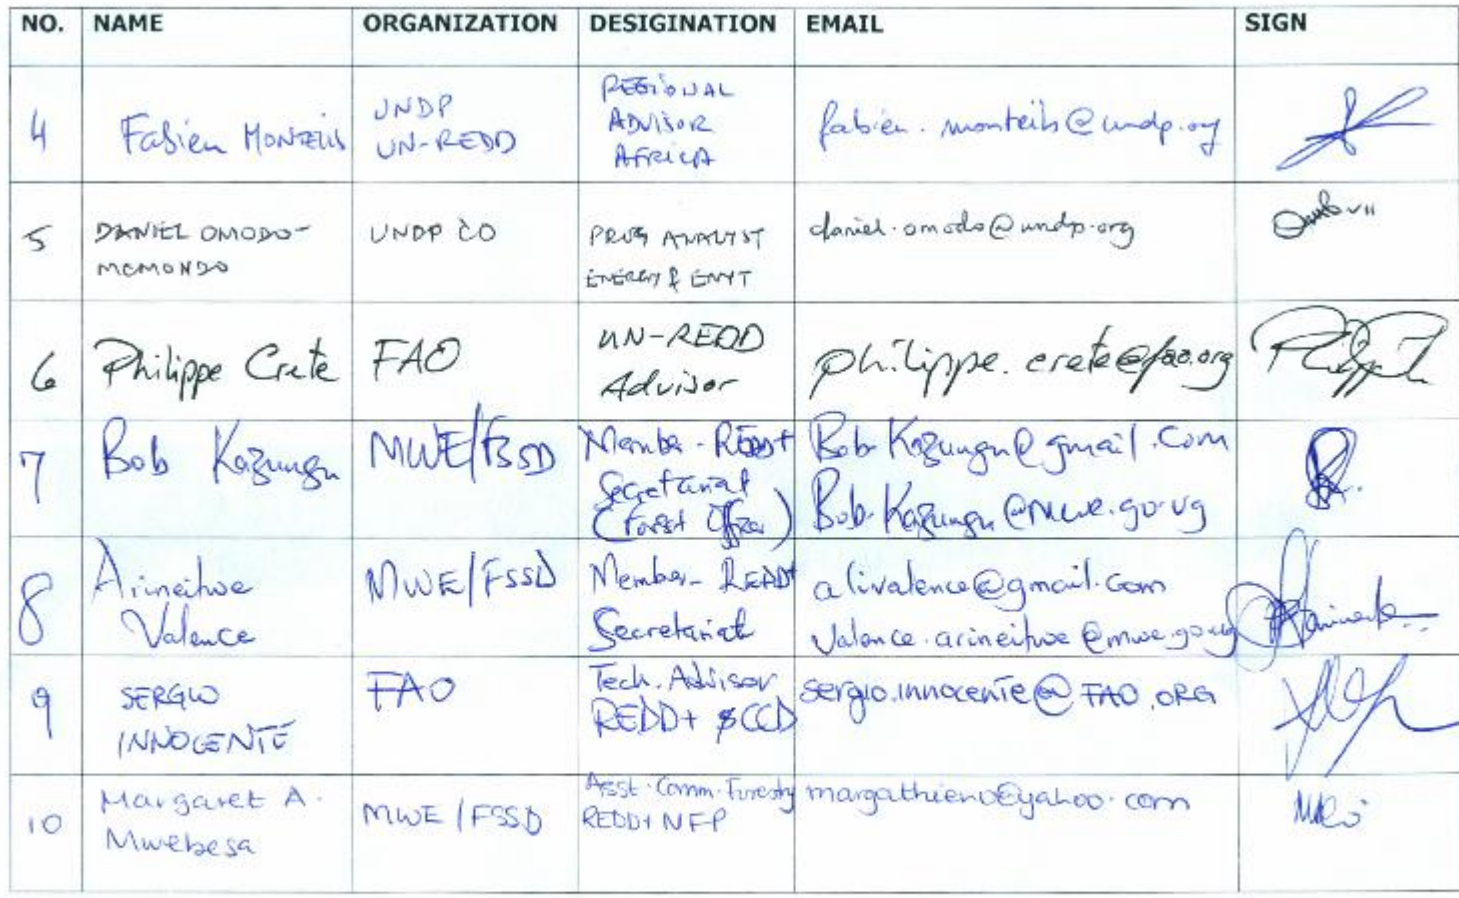 NO. NAME ORGANIZATION DESIGINATION EMAIL SIGN
4 Fabien MONTEILS UNDP UN-REDD REGIONAL ADVISOR AFRICA fabien.monteils@undp.org
5 DANIEL OMODO-MCMONDO UNDP CO PROG ANALYST ENERGY & ENVT daniel.omodo@undp.org
6 Philippe Crete FAO UN-REDD Advisor philippe.crete@fao.org
7 Bob Kazungu MWE/FSSD Member - REDD+ Secretariat (Forest Officer) Bob.Kazungu@gmail.com Bob.Kazungu@mwe.go.ug
8 Arineitwe Valence MWE/FSSD Member - REDD+ Secretariat alivalence@gmail.com Valence.arineitwe@mwe.go.ug
9 SERGIO INNOCENTE FAO Tech. Advisor REDD+ &CCD sergio.innocente@FAO.ORG
10 Margaret A. Mwebesa MWE/FSSD Asst. Comm. Forestry REDD+ NFP margathieno@yahoo.com